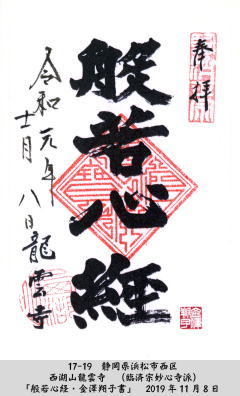 奉拝
般若心経
令和元年
十一月八日龍雲寺
金澤
翔子
17-19 静岡県浜松市西区
西湖山龍雲寺 （臨済宗妙心寺派）
「般若心経・金澤翔子書」 2019年11月8日